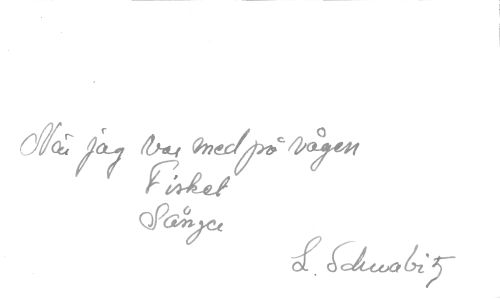 När jag var med på vågen
Fisket
Sånger
L. Schwabitz